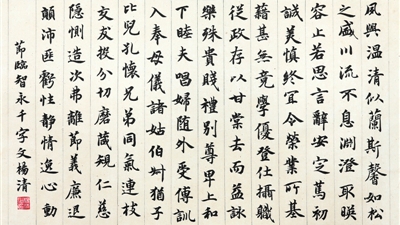 夙興溫清似蘭斯馨如松
之盛川流不息淵澄取暎
容止若思言辭安定篤初
誠美慎終宜令榮業所基
藉甚無竟學優登仕攝職
從政存以甘棠去而益詠
樂殊貴賤禮別尊卑上和
下睦夫唱婦随外受傅訓
入奉母儀諸姑伯叔猶子
比兒孔懷兄弟同氣連枝
交友投分切磨箴規仁慈
隱惻造次弗離節義廉退
顛沛匪虧性静情逸心動
節臨智永千字文楊清